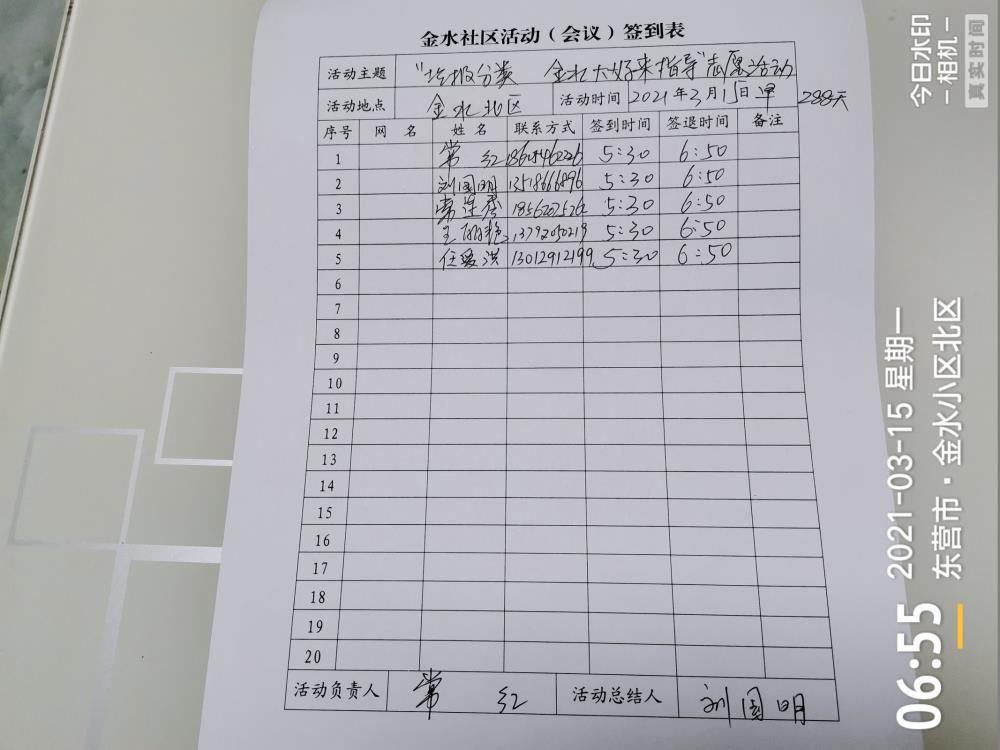 金水社区活动（会议）签到表
活动主题 "垃圾分类 金水大好来指导"志愿活动
活动地点 金水北区 活动时间 2021年3月15日早 288天
序号 网名 姓名 联系方式 签到时间 签退时间 备注
1 常红 5:30 6:50
2 刘国明 13518666896 5:30 6:50
3 5:30 6:50
4 王丽艳 13792050219 5:30 6:50
5 任爱洪 13012912199 5:30 6:50
6
7
8
9
10
11
12
13
14
15
16
17
18
19
20
活动负责人 常红 活动总结人 刘国明
今日水印
-相机-
真实时间
06:55
2021-03-15 星期一
东营市·金水小区北区